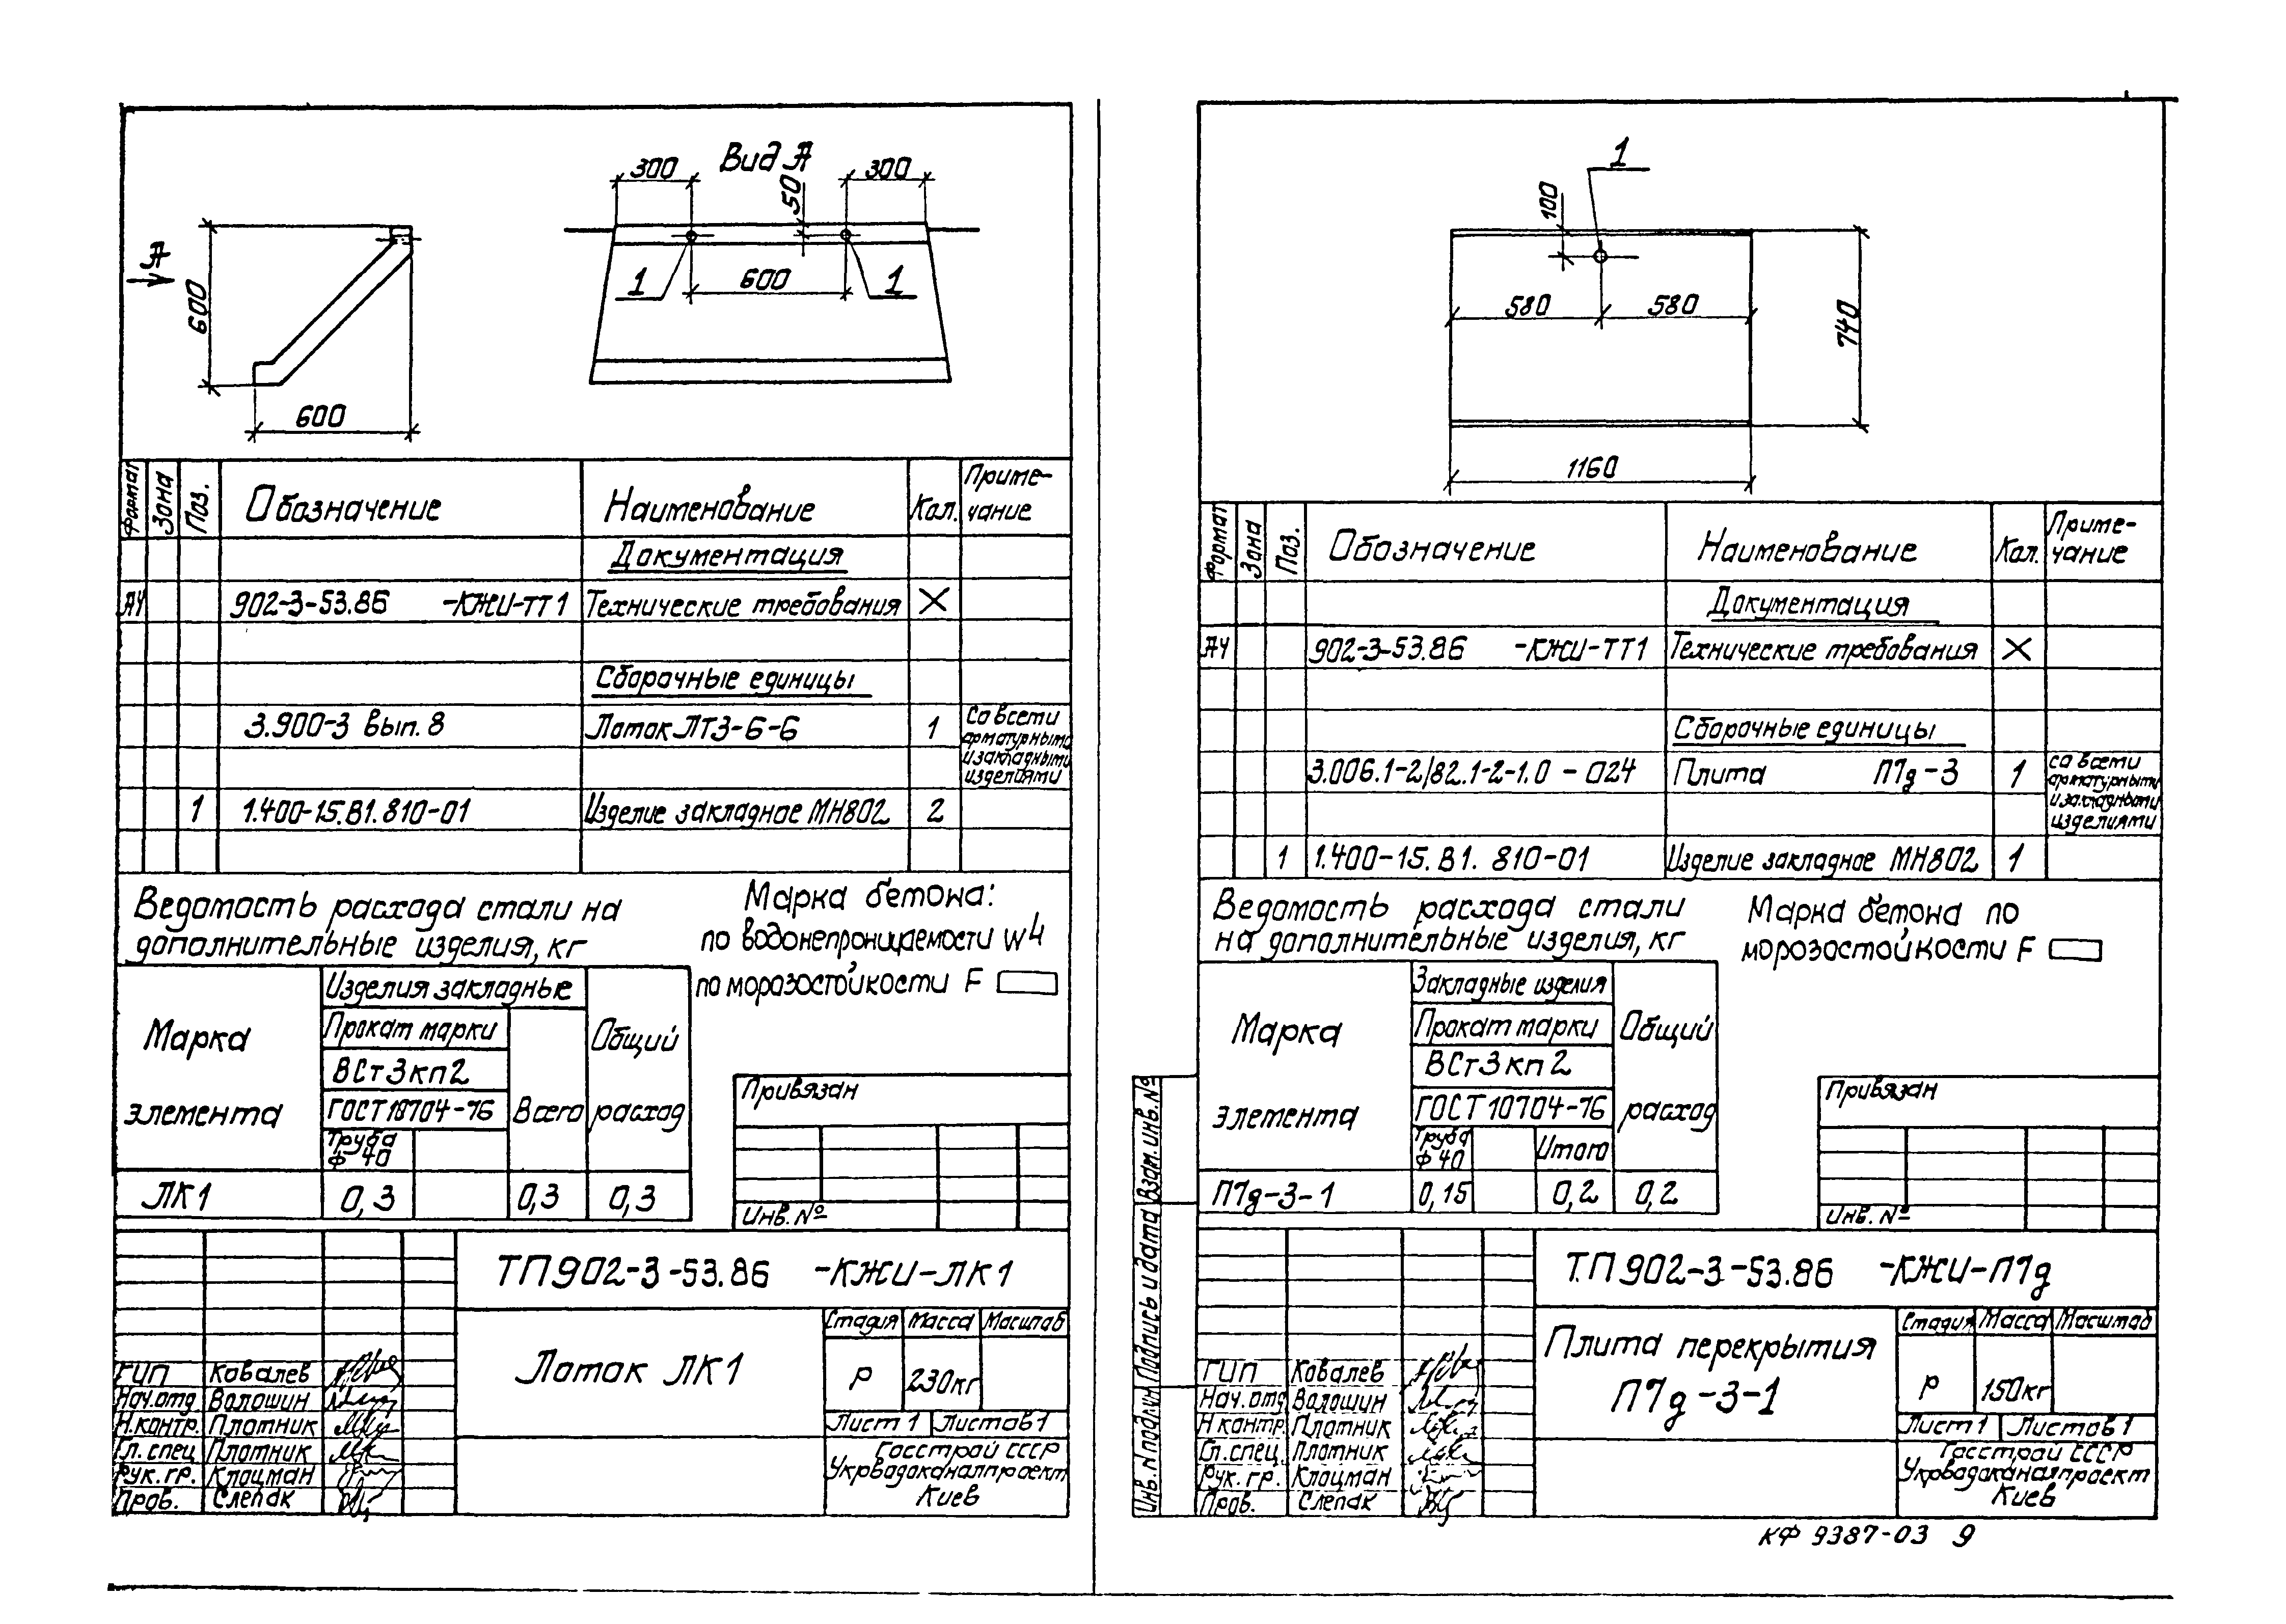 Вид А
300
50
300
А
600
600
1
600
1
Формат Зона Поз. Обозначение Наименование Кол. Приме-
чание
Документация
А4 902-3-53.86 -КЖИ-ТТ1 Технические требования X
Сборочные единицы
3.900-3 вып. 8 Лоток ЛТ3-6-6 1 со всеми
арматурными
и закладными
изделиями
1 1.400-15.В1.810-01 Изделие закладное МН802 2
Ведомость расхода стали на
дополнительные изделия, кг
Марка бетона:
по водонепроницаемости W4
по морозостойкости F
Марка
элемента
Изделия закладные
Прокат марки
ВСт3кп2
ГОСТ 10704-76
Труба
Ф 40
Всего
Общий
расход
ЛК1 0,3 0,3 0,3
Привязан
Инв. №
ТП 902-3-53.86 -КЖИ-ЛК1
Лоток ЛК1
Стадия Масса Масштаб
Р 230кг
Лист 1 Листов 1
Госстрой СССР
Укрводоканалпроект
Киев
ГИП Ковалев
Нач.отд Волошин
Н.контр. Плотник
Гл.спец Плотник
Рук. гр. Клоцман
Пров. Слепак
1
100
580 580
740
1160
Формат Зона Поз. Обозначение Наименование Кол. Приме-
чание
Документация
А4 902-3-53.86 -КЖИ-ТТ1 Технические требования X
Сборочные единицы
3.006.1-2/82.1-2-1.0 - 024 Плита П7д-3 1 со всеми
арматурными
и закладными
изделиями
1 1.400-15.В1. 810-01 Изделие закладное МН802 1
Ведомость расхода стали
на дополнительные изделия, кг
Марка бетона по
морозостойкости F
Марка
элемента
Закладные изделия
Прокат марки
ВСт3кп2
ГОСТ 10704-76
Труба
Ф 40
Итого
Общий
расход
П7д-3-1 0,15 0,2 0,2
Привязан
Инв. №
Взам.инв.№
Подпись и дата
Инв.№ подлин
ТП 902-3-53.86 -КЖИ-П7д
Плита перекрытия
П7д-3-1
Стадия Масса Масштаб
Р 150кг
Лист 1 Листов 1
Госстрой СССР
Укрводоканалпроект
Киев
ГИП Ковалев
Нач.отд Волошин
Н контр. Плотник
Гл.спец Плотник
Рук. гр. Клоцман
Пров. Слепак
КФ 9387-03 9